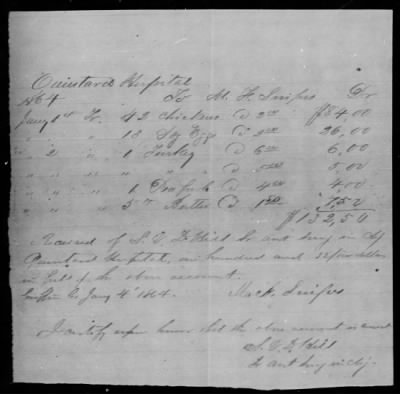 Quintard Hospital
1864 To M. H. Snipes Dr
Jany 1st For 42 Chickens @ 2 00 $84.00
" " 13 Doz Eggs @ 2 00 26.00
" 2 " 1 Turkey @ 6 00 6.00
" " " " " @ 5 00 5.00
" " " 1 @ 4 00 4.00
" " " 5 lb Butter @ 1 50 7.50
$132,50
Received of S. V. D. Hill Sr asst Surg in chg
Quintard Hospital, one hundred and 32 50/100 dollars
in full of the above account.
Griffin Ga Jany 4th 1864. Mack. Snipes
I certify upon honor that the above account is correct
S. V. D. Hill
Sr asst Surg in chg.